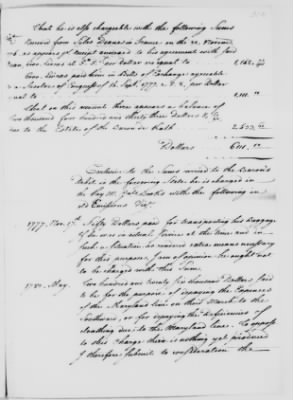 That he is also chargeable with the following Sums
Received from Silas Deane in France on the 22 Novem
as appears pr receipt annexed to his agreement with said
per dollar is equal to
paid him in Bills of Exchange agreeable
Resolve of Congress of 16 Sept. 1777
per Dollar
equal to
That on this account there appears a balance of
Two thousand four hundred and thirty three Dollars
due to the Estate of the Baron de Kalb
Dollars
Exclusive to the Sums carried to the Baron's
debit in the foregoing State he is charged in
the Pay Off. Books with the following in
Old Emissions Viz.
1777. Nov. Fifty Dollars paid for transporting his Baggage
if he was in actual Service at the time and in
such a Situation as rendered extra means necessary
for this purpose I am of opinion he ought not
to be charged with this Sum.
1780. May. Two hundred and twenty Six thousand Dollars said
to be for the purpose of defraying the Expences
of the Maryland line on their March to the
Southward, or for defraying the deficiencies of
cloathing due to the Maryland line. To oppose
to this charge there is nothing yet produced
I therefore submit to consideration the